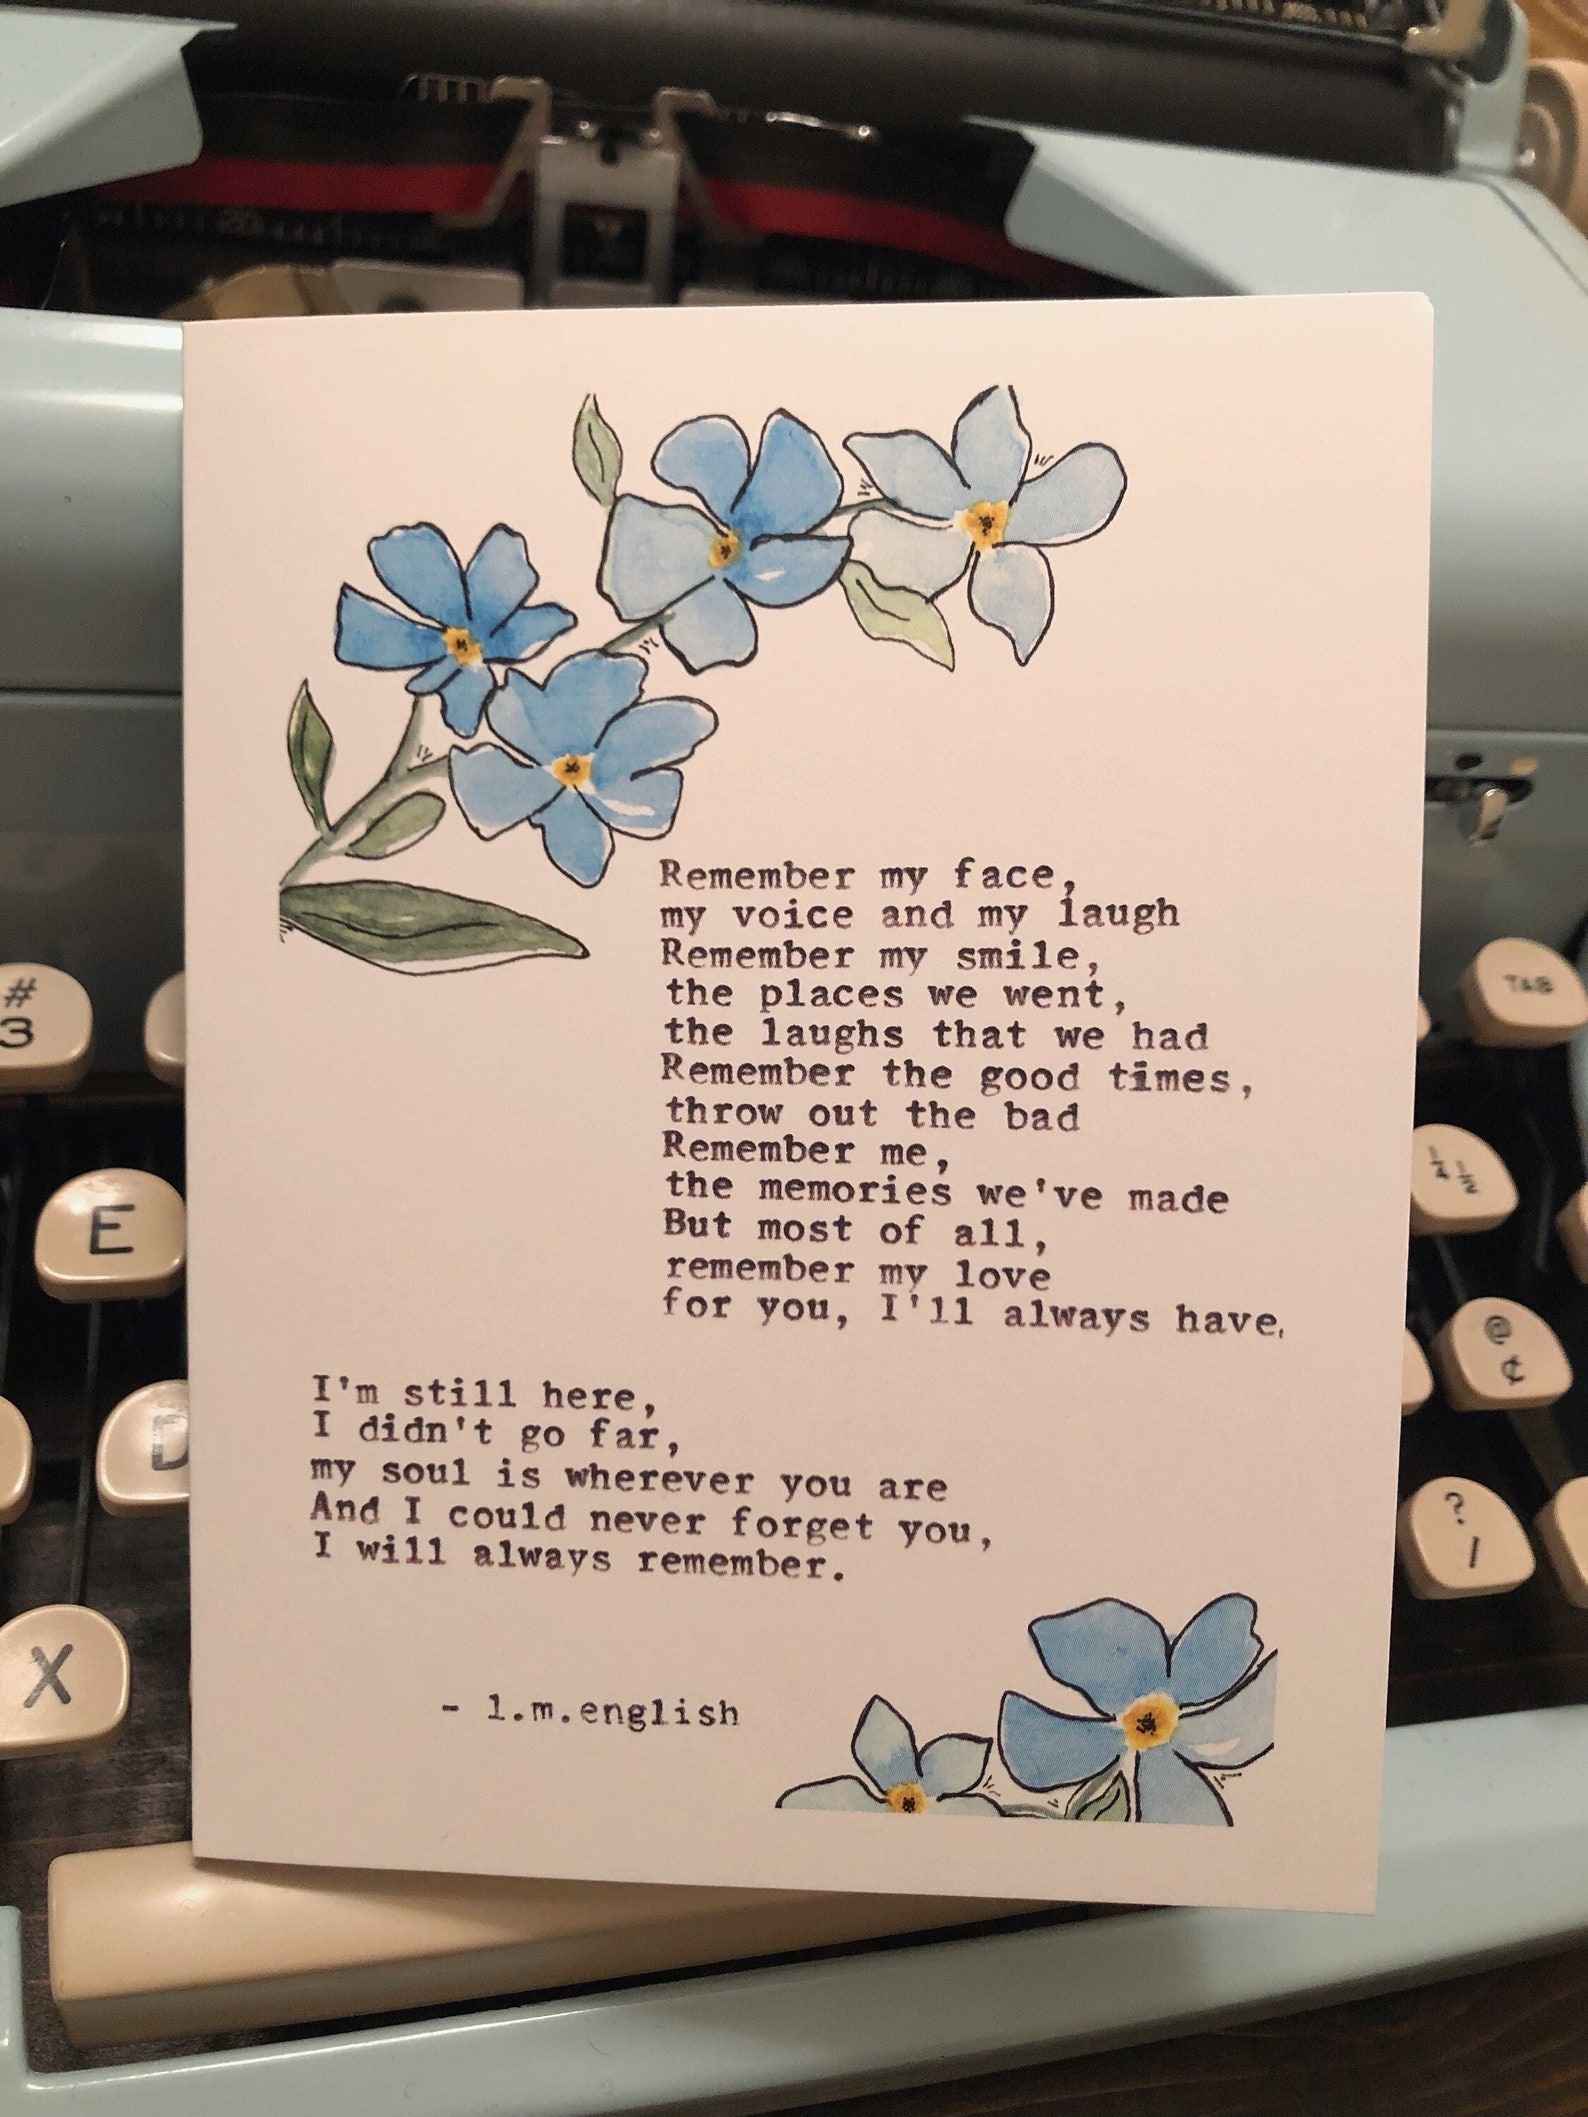 Remember my face,
my voice and my laugh
Remember my smile,
the places we went,
the laughs that we had
Remember the good times,
throw out the bad
Remember me,
the memories we've made
But most of all,
remember my love
for you, I'll always have,
I'm still here,
I didn't go far,
my soul is wherever you are
And I could never forget you,
I will always remember.
- l.m.english
#
3
E
D
X
TAB
¼ ½
@
¢
?
/